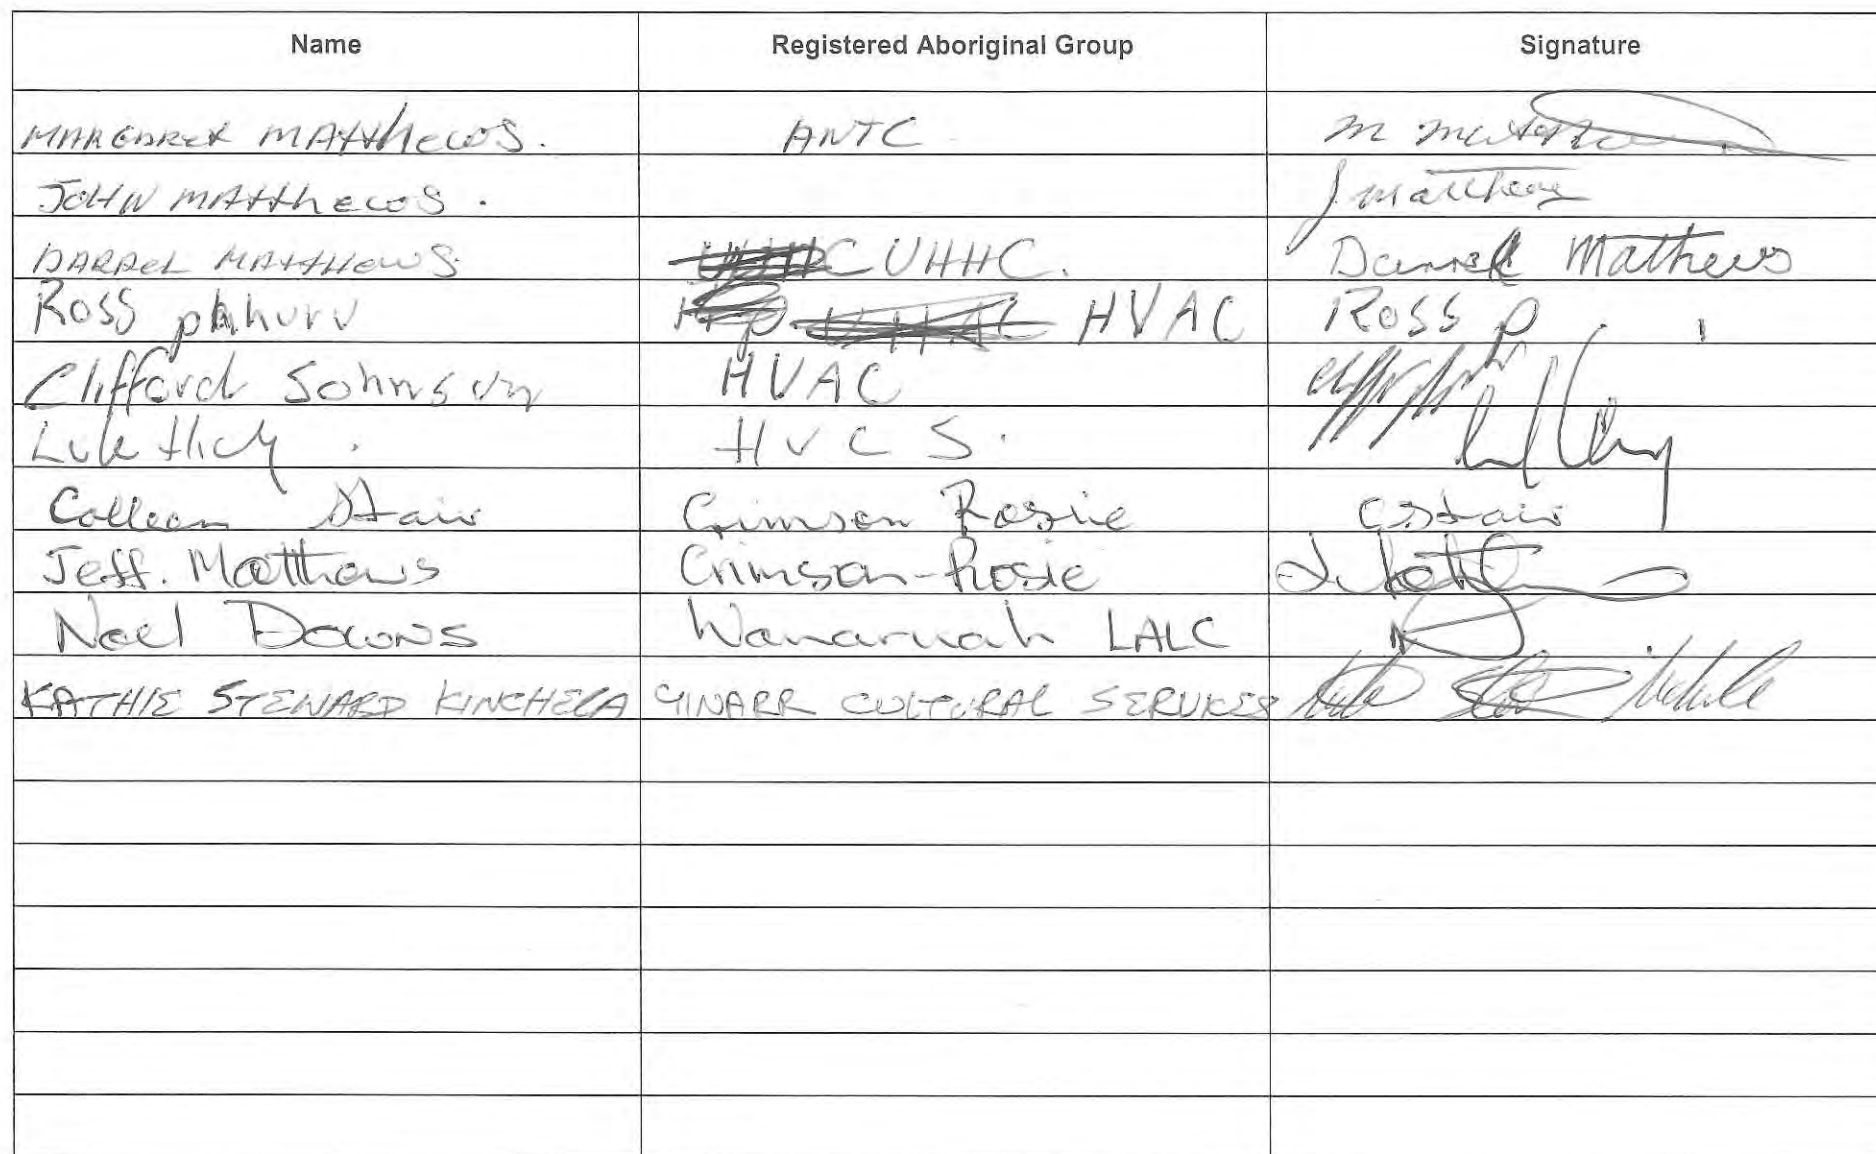 Name Registered Aboriginal Group Signature
MARGARET MATTHEWS. ANTC m
JOHN MATTHEWS. J Matthews
DARREL MATTHEWS. UHHC. Darrel Mathews
Ross HVAC ROSS p
Clifford Johnson HVAC
Luke Hickey. HVCS.
Colleen Stair Crimson Rosie C Stair
Jeff. Matthews Crimson-Rosie
Noel Downs Wanaruah LALC
KATHIE STEWARD KINCHELA YINARR CULTURAL SERVICES